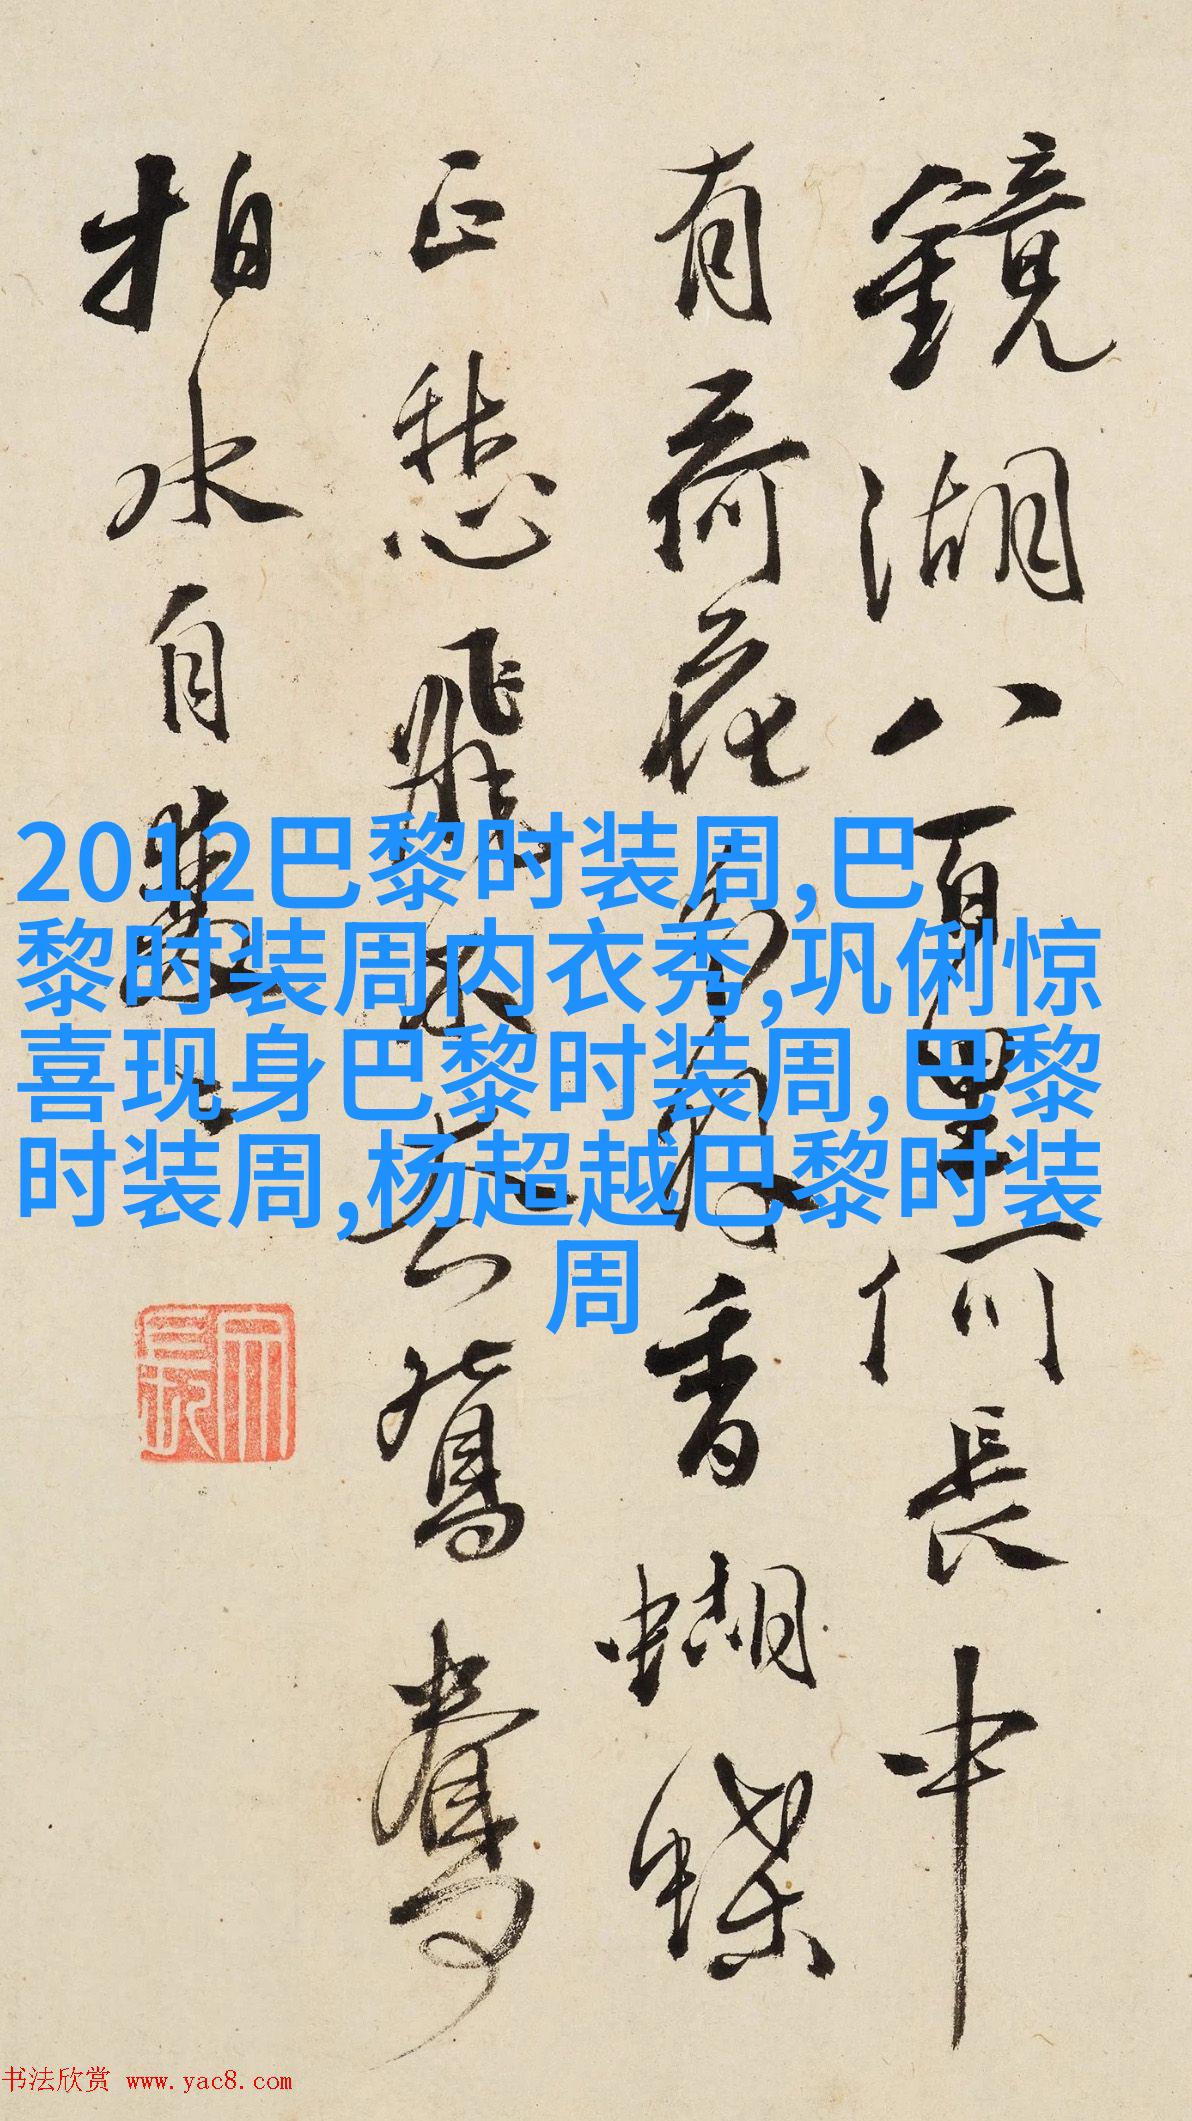 鏡湖八百里何長中
有荷花分外香蝴蝶
正愁飛不鴛鴦
拍水自雙
2012巴黎时装周,巴
黎时装周内衣秀,巩俐惊
喜现身巴黎时装周,巴黎
时装周,杨超越巴黎时装
周
书法欣赏 www.yac8.com